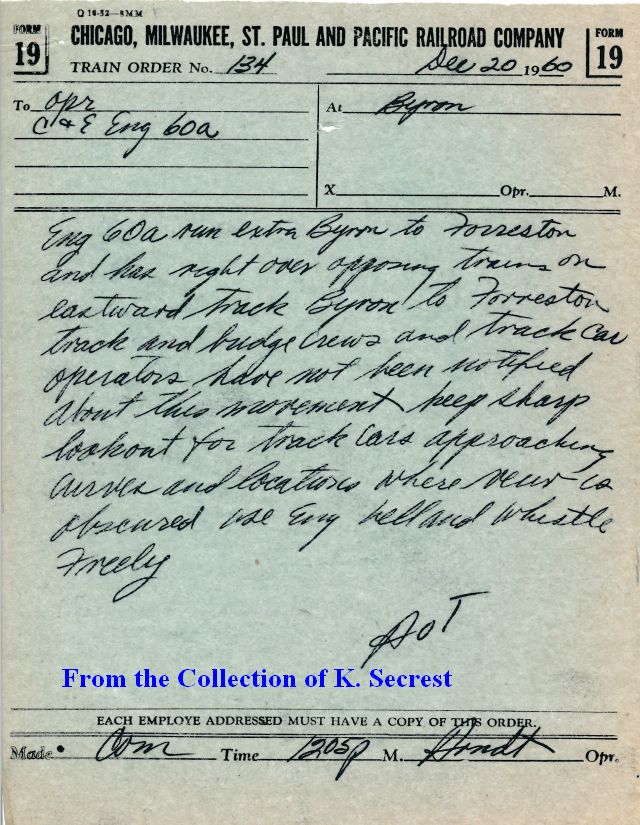 Q 10-52—8MM
FORM 19
CHICAGO, MILWAUKEE, ST. PAUL AND PACIFIC RAILROAD COMPANY
FORM 19
TRAIN ORDER No. 134 Dec 20 1960
To opr At Byron
C & E Eng 60a
X Opr. M.
Eng 60a run extra Byron to Forreston
and has right over opposing trains on
eastward track Byron to Forreston
track and bridge crews and track car
operators have not been notified
about this movement keep sharp
lookout for track cars approaching
curves and locations where view is
obscured use Eng bell and whistle
Freely
From the Collection of K. Secrest
EACH EMPLOYE ADDRESSED MUST HAVE A COPY OF THIS ORDER.
Made Com Time 1205p M. Opr.